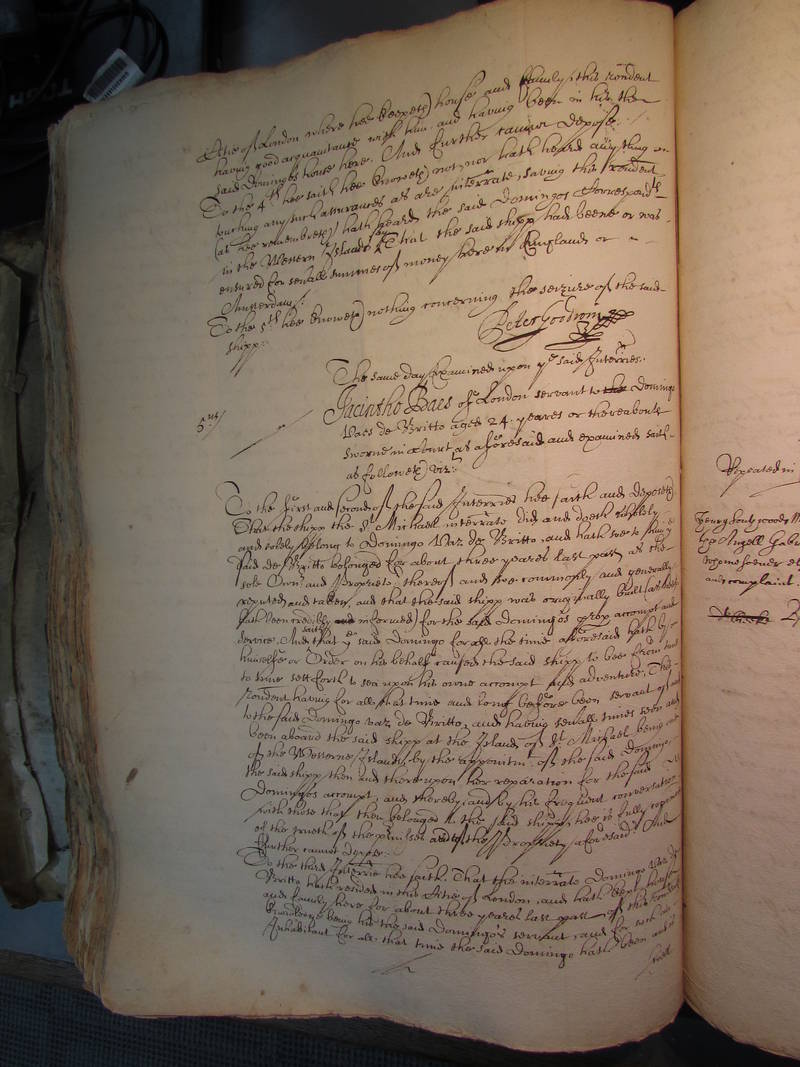 Citie of London where hee keepeth house and family, this rendent
having good acquaintance with him and having been in his the
said Domingos house here. And further cannot depose.
To the 4th hee saith hee knoweth not, nor hath heard any thing on
touching any such assurances as are interrate, saving this rendent
(as hee remembreth) hath heard the said Domingos Correspondts
in the Western Islands say That the said shipp had beene or was
ensured for severall summes of money here in England or
Amsterdam:
To the 5th hee knoweth nothing concerning the seizure of the said
shipp:
Peter Goodrom
The same day Examined upon ye said Interries.
5us/
Jacintho Baes of London servant to the Domingo
Vaes de Britto aged 24 yeares or thereabouts
sworne in Court as aforesaid and examined saith
as followeth vizt:
To the first and second of the said Interries hee saith and deposeth
That the shipp the St Michaell interrate did and doeth
and solely belong to Domingo Vaz de Britto, and hath soe to him ye
said de Britto belonged for about three yeares last past as the
sole Owner and Proprieto thereof and soe commonly and generally
reputed and taken, and that the said shipp was originally built (as
hath been credibly and informed) for the said Domingo's accompt and
service. And saith that ye said Domingo for all the time aforesaid hath by
himselfe or Order on his behalf caused the said shipp to bee from time
to time sett forth to sea upon his owne accompt and adventure, This
rendent having for all that time and long before been servant
to the said Domingo vaz de Britto, and having severall times seen and
been aboard the said shipp at the Islands of St Michael being one
of the Westerne Islands, by the appointmt of the said Domingo,
the said shipp then and there upon her reparation for the said
Domingo's accompt, and thereby and by his frequent conversation
with those that then belonged to the said shipp, hee is fully
of the trueth of the premisses and of the Propriety aforesaid And
further cannot depose.
To the third Interrie hee saith That the interrate Domingo Vaz de
Britto hath resided in this Citie of London and hath kept house
and family here for about three yeares last past of this rendents
knowledge being his the said Domingo's servant and for such
Inhabitant for all that time the said Domingo hath been and is
Repeated in
Henry
Angell
and complaint